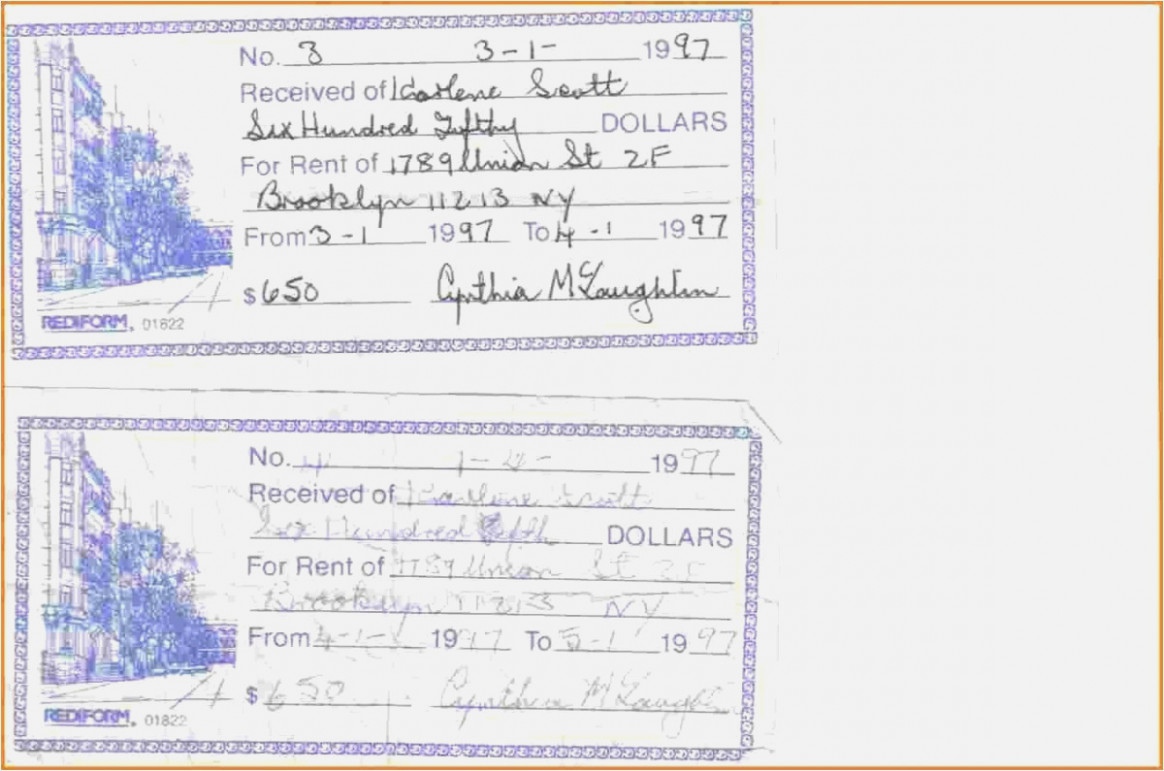 No. 3 3-1- 1997
Received of Karlene Scott
Six Hundred Fifthy DOLLARS
For Rent of 1789 Union St 2F
Brooklyn 11213 NY
From 3-1 1997 To 4-1 1997
$650 Cynthia McLaughlin
REDIFORM. 01822
No. 4 1-4- 1997
Received of Karlene Scott
Six Hundred Fifth DOLLARS
For Rent of 1789 Union St 2F
Brooklyn 11213 NY
From 4-1- 1997 To 5-1 1997
$650 Cynthia McLaughlin
REDIFORM. 01822